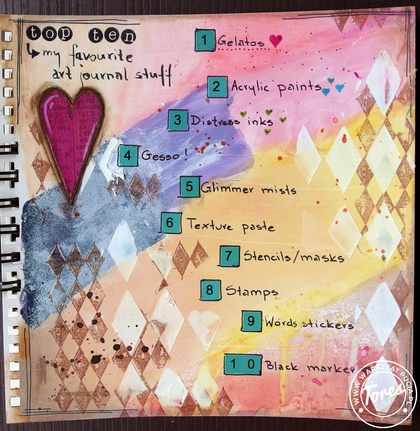 top ten
my favourite
art journal stuff
1 Gelatos
2 Acrylic paints
3 Distress inks
4 Gesso!
5 Glimmer mists
6 Texture paste
7 Stencils/masks
8 Stamps
9 Words stickers
10 Black marker
Tores